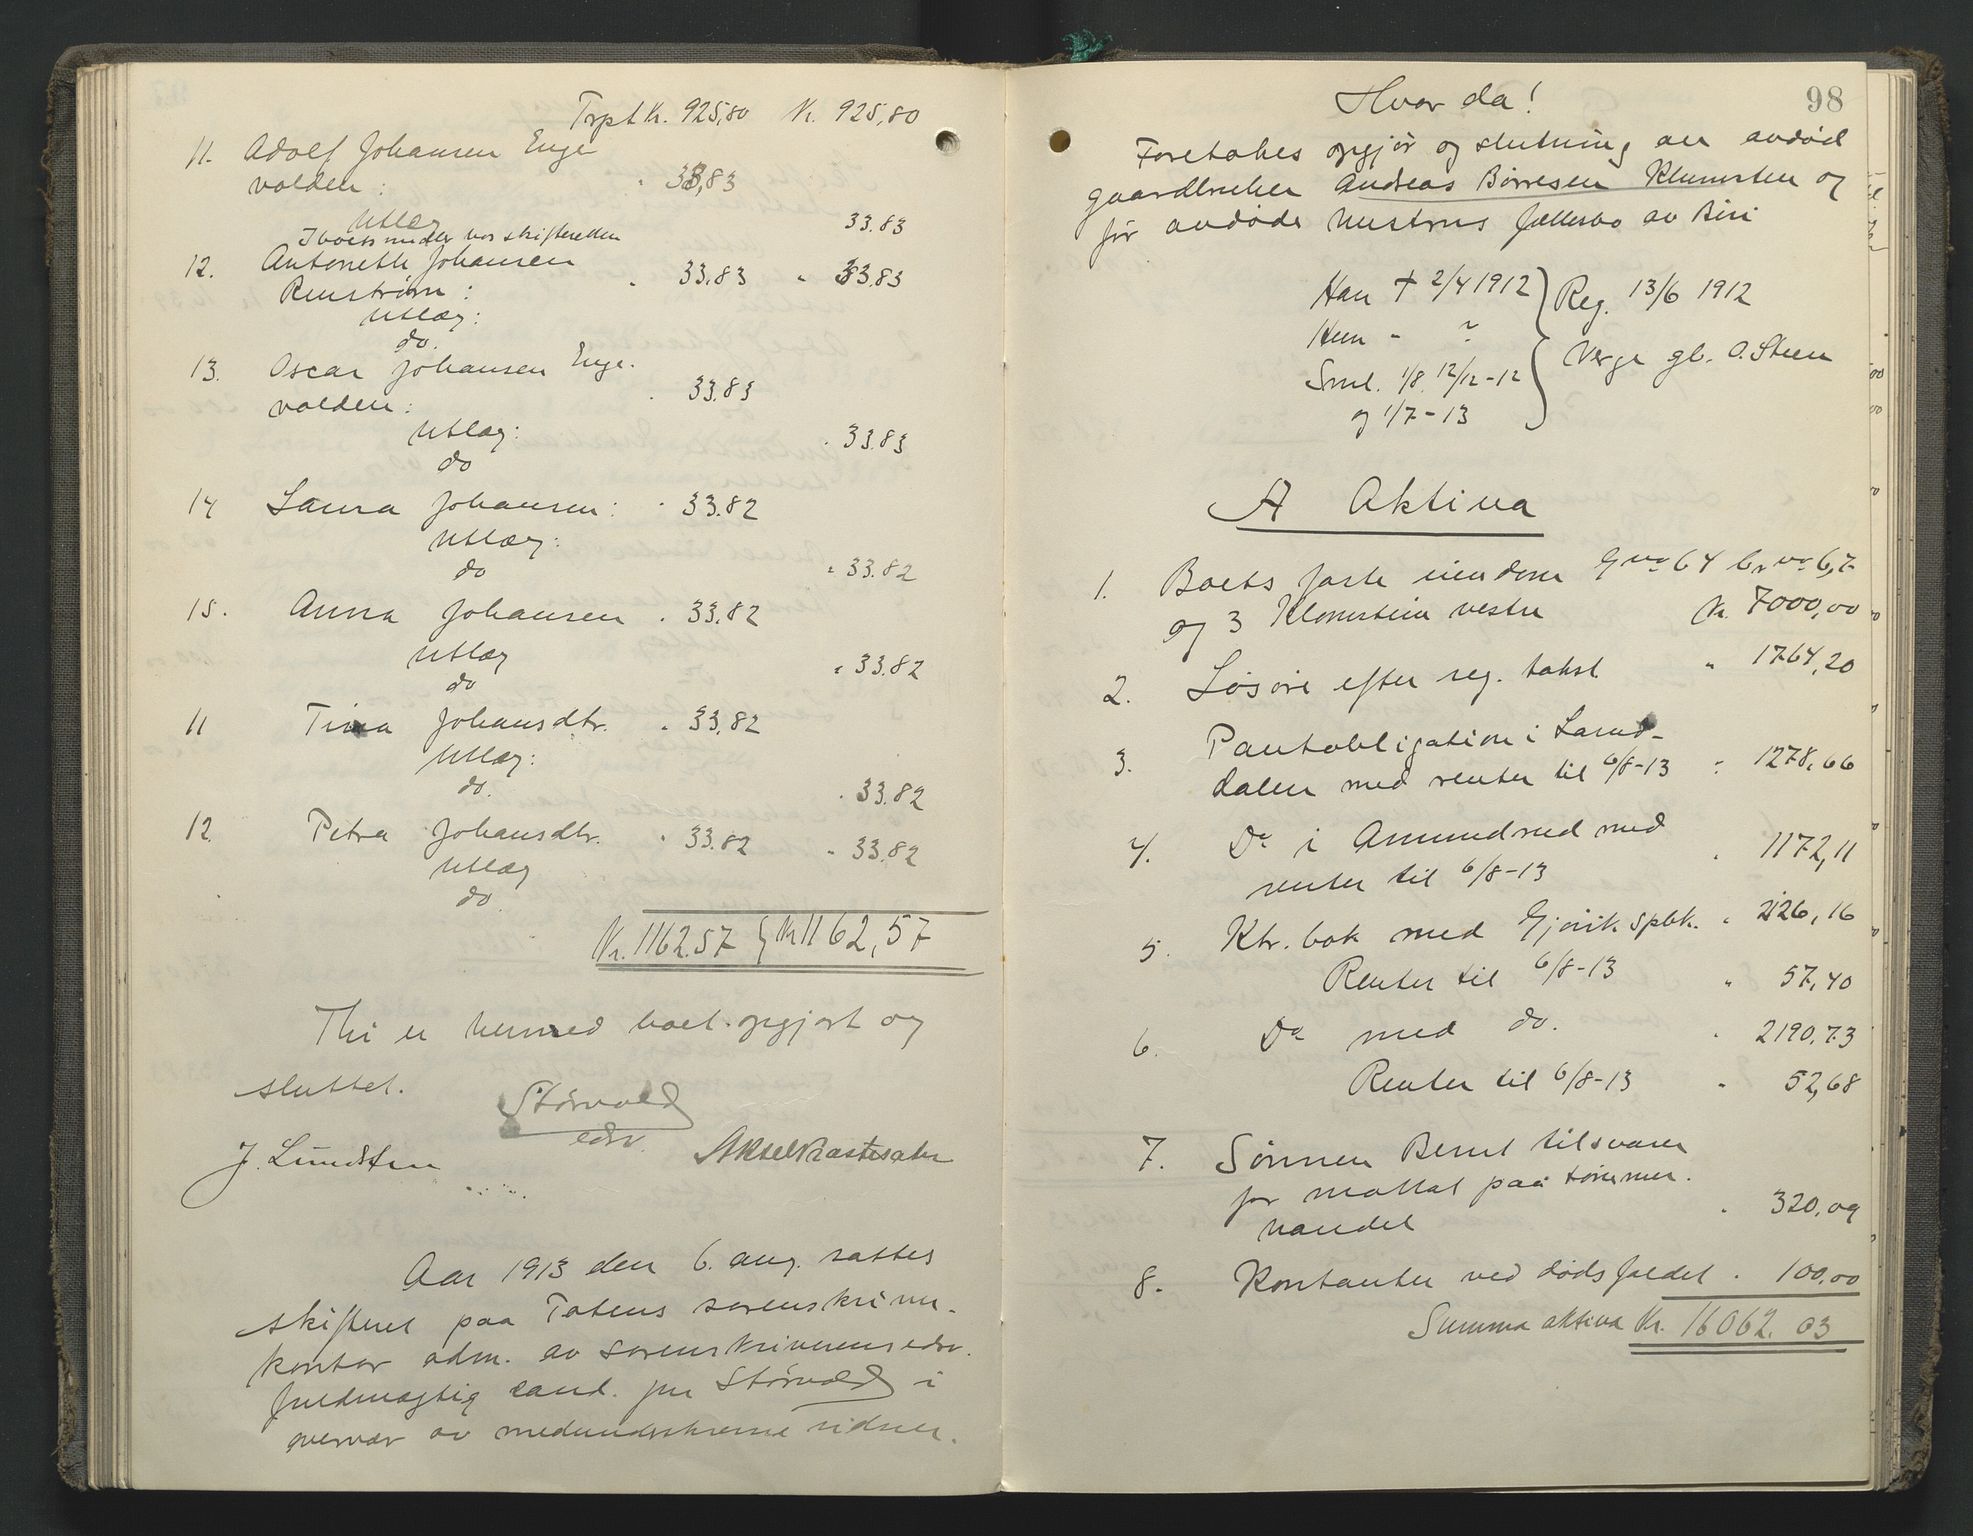 Trpt Kr. 925,80 Kr. 925,80
11. Adolf Johansen Enge
volden: " 33,83
Utlæg
I boets midler hos skifteretten 33.83
12. Antonette Johansen
Renstrøm: " 33.83 " 33.83
Utlæg:
do.
13. Oscar Johansen Enge-
volden: " 33.83
Utlæg: " 33.83
do
14 Laura Johansen: " 33.82
Utlæg:
do " 33.82
15. Anna Johansen " 33.82
Utlæg
do " 33.82
11 Tina Johansdtr. " 33,82
Utlæg:
do. " 33.82
12. Petra Johansdtr. " 33.82 " 33.82
Utlæg
do
Kr. 1162.57 Kr 1162,57
Thi er hermed boet opgjort og
sluttet.
Størvold
edsv.
J. Lundsten Aksel Rastesater
Aar 1913 den 6. aug. sattes
skifteret paa Totens sorenskriver-
kontor adm. av sorenskriverens edsv.
fuldmægtig cand. jur Størvold i
overvær av medunderskrevne vidner.
98
Hvor da!
Foretokes opgjør og slutning av avdød
gaardbruker Andreas Børresen Klumsten og
før avdøde hustrus fællesbo av Biri
Han † 2/4 1912 Reg. 13/6 1912
Hun " ?
Verge gb. O. Steen
Sml. 1/8. 12/12-12
og 1/7-13
A Aktiva
1. Boets faste eiendom Gno 64 Brno 6,7
og 3 Klomstein vestre Kr. 7000,00
2. Løsøre efter reg. takst " 1764,20
3. Pantobligation i Lund-
dalen med renter til 6/8-13 " 1278,66
4. Do i Amundrud med
renter til 6/8-13 " 1172,11
5. Ktr. bok med Gjøvik Spbk. " 2126,16
Renter til 6/8-13 " 57,40
6. Do med do. " 2190,73
Renter til 6/8-13 " 52,68
7. Sønnen Bernt tilsvarer
for mottat paa tømmer-
handel " 320,09
8. Kontanter ved dødsfaldet " 100,00
Summa aktiva Kr. 16062.03